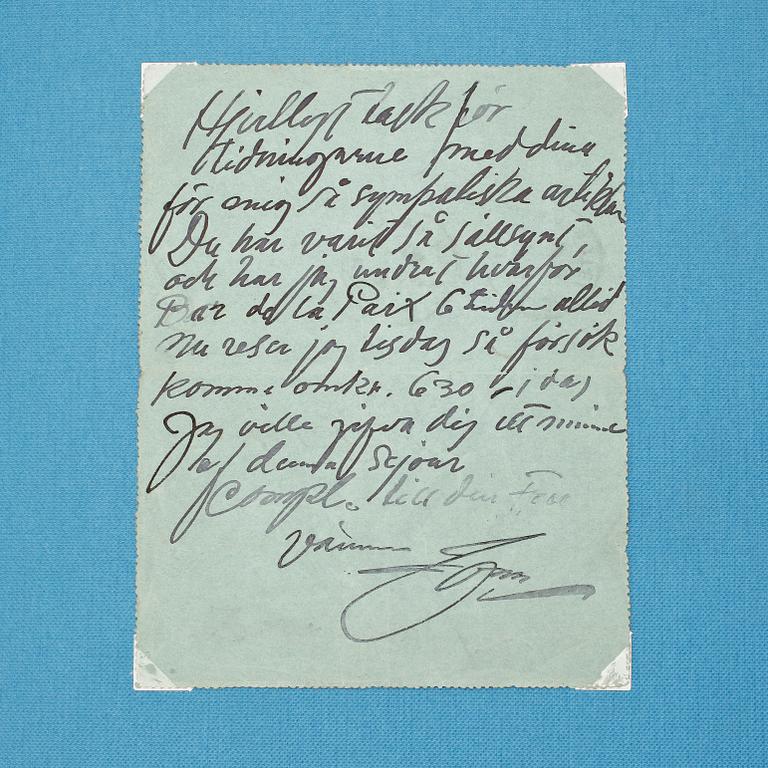 Hjertligt tack för
tidningarne med dina
för mig så sympatiska artiklar
Du har varit så sällsynt,
och har jag undrat hvarför
Bar de la Paix 6 tiden alltid
Nu reser jag tisdag så försök
komma omkr. 630 - i dag
Jag ville gifva dig ett minne
af denna sejour
Compl. till din Fru
vännen
Zorn